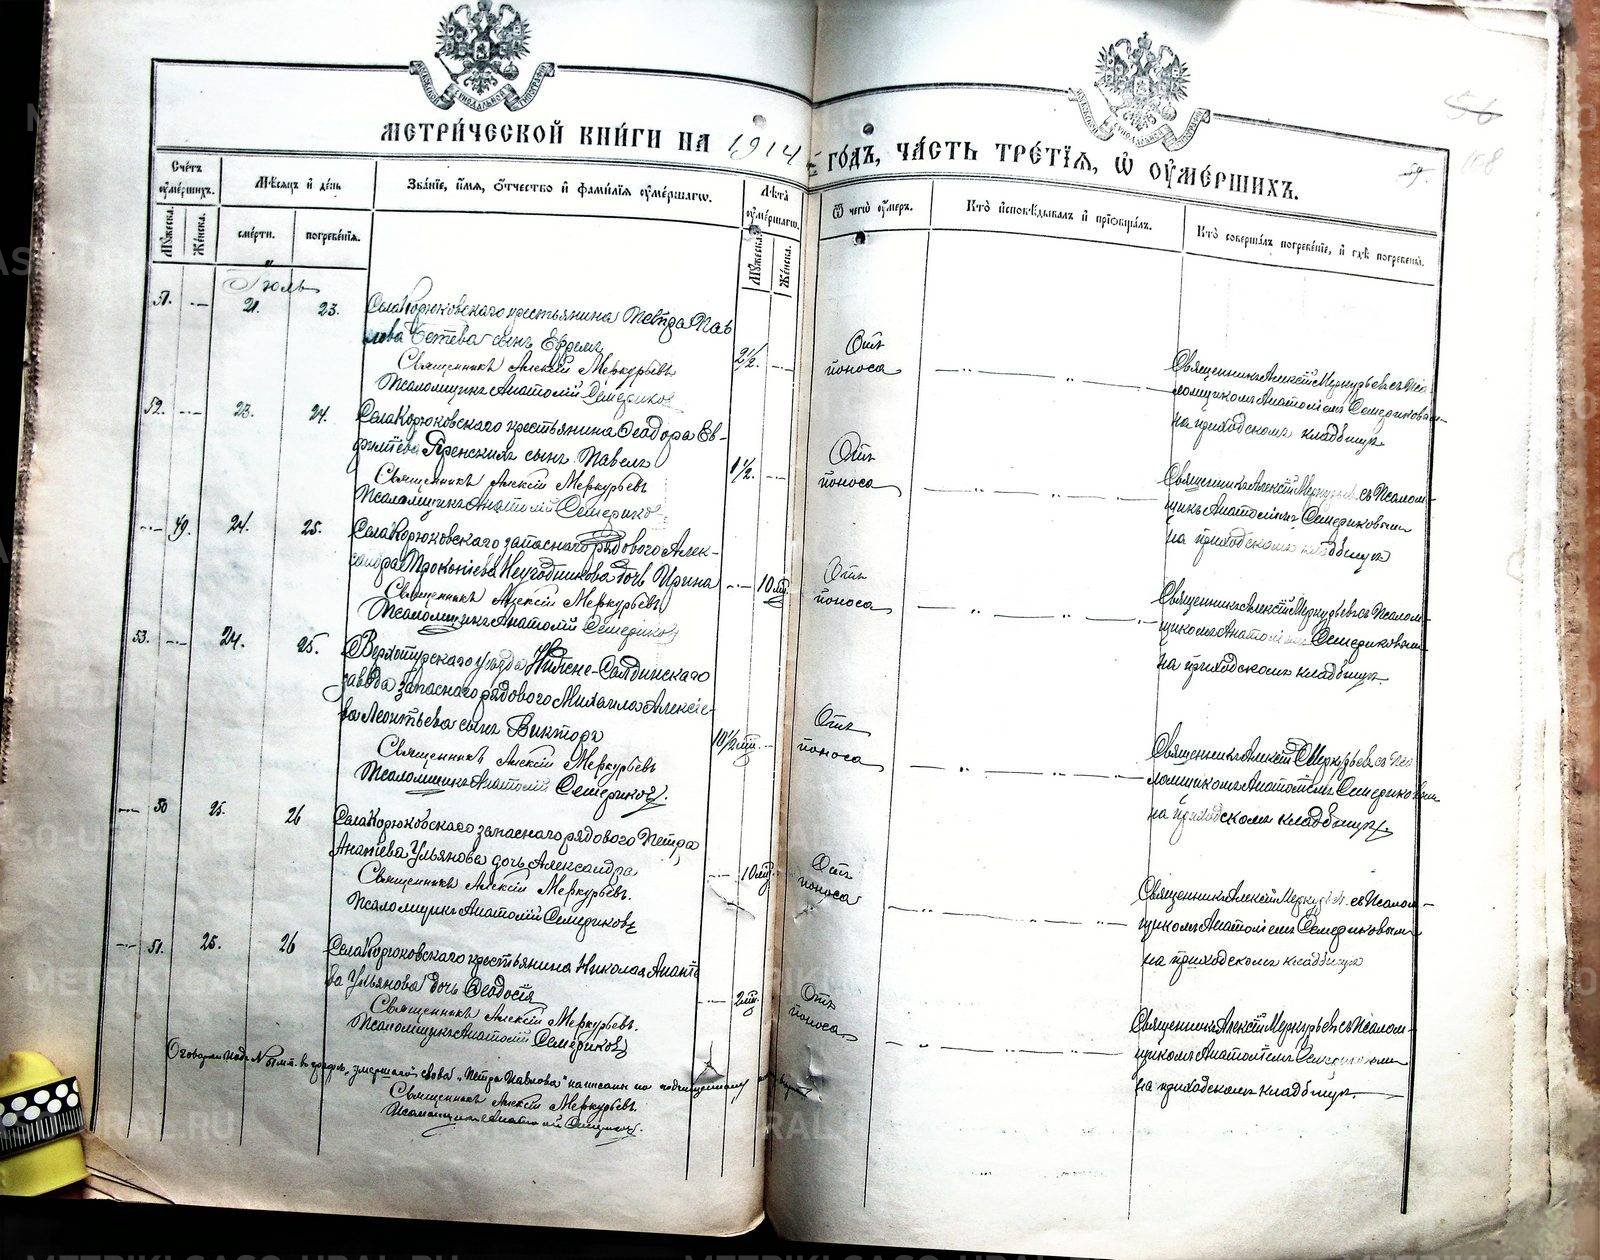 МЕТРИ́ЧЕСКОЙ КНИ́ГИ НА 1914 ГО́ДЪ, ЧА́СТЬ ТРЕ́ТІѦ, Ѡ҆ ОУ҆МЕ́РШИХЪ.
56
59.
108
Счетъ оумершихъ.
Мужеска. Женска.
Мѣсяцъ и день
смерти. погребенія.
Званіе, имя, отчество и фамилія оумершагѡ.
Лѣта оумершагѡ.
Мужеска. Женска.
Ѿ чегѡ оумеръ.
Кто исповѣдывалъ и пріобщалъ.
Кто совершалъ погребеніе, и гдѣ погребены.
Іюль
51. 21. 23.
Села Корюковскаго крестьянина Петра Пав
лова сынъ Ефремъ
Священникъ Алексій Меркурьевъ
Псаломщикъ Анатолій Семериковъ
2½.
Отъ
поноса
Священникъ Алексій Меркурьевъ съ Пса
ломщикомъ Анатоліемъ Семериковым
на приходскомъ кладбищѣ
52. 23. 24.
Села Корюковскаго крестьянина Ѳеодора Ев-
сынъ Павелъ
Священникъ Алексій Меркурьевъ
Псаломщикъ Анатолій Семериков
1½.
Отъ
поноса
Священникъ Алексій Меркурьевъ съ Псалом-
щикъ Анатоліемъ Семериковымъ
на приходскомъ кладбищѣ
49. 24. 25.
Села Корюковскаго запаснаго рядового Алек-
сандра Прокопіева Неугодникова дочь Ирина
Священникъ Алексій Меркурьевъ
Псаломщикъ Анатолій Семериковъ
10 м.
Отъ
поноса
Священникъ Алексій Меркурьевъ съ Псалом-
щикомъ Анатоліемъ Семериковымъ
на приходскомъ кладбищѣ.
53. 24. 25.
Верхотурскаго уѣзда Нижне-Салдинскаго
завода запаснаго рядового Михаила Алексѣе-
ва Леонтьева сынъ Викторъ
Священникъ Алексій Меркурьевъ
Псаломщикъ Анатолій Семериковъ.
10½ м.
Отъ
поноса
Священникъ Алексій Меркурьевъ съ Пса
ломщикомъ Анатоліемъ Семериковым
на приходскомъ кладбищѣ.
50 25. 26
Села Корюковскаго запаснаго рядового Петра
Ананіева Ульянова дочь Александра
Священникъ Алексій Меркурьевъ.
Псаломщикъ Анатолій Семериковъ
10 м.
Отъ
поноса
Священникъ Алексій Меркурьев. съ Псалом-
щикомъ Анатоліемъ Семериковымъ
на приходскомъ кладбищѣ
51. 25. 26
Села Корюковскаго крестьянина Николая Ананіе
ва Ульянова дочь Ѳеодосія
Священникъ Алексій Меркурьевъ.
Псаломщикъ Анатолій Семериковъ
2 м.
Отъ
поноса
Священникъ Алексій Меркурьевъ съ Псалом-
щикомъ Анатоліемъ
на приходскомъ кладбищѣ.
въ графѣ „умершаго“ слова „Петра Павлова“ написаны по подчищенному
Священникъ Алексій Меркурьевъ.
Псаломщикъ Анатолій Семериковъ.